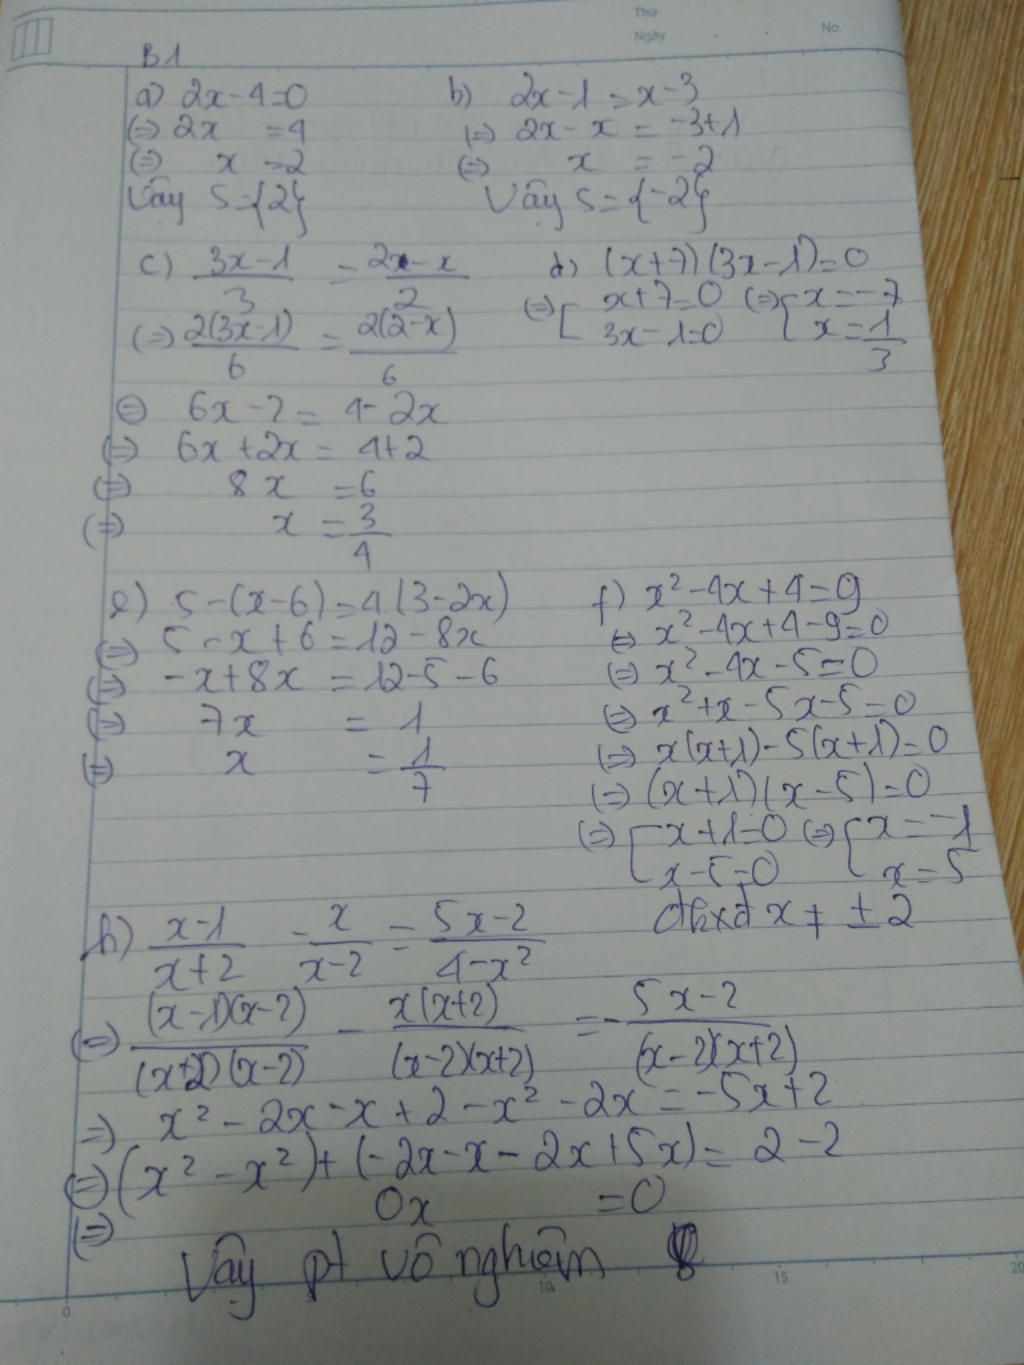 Thứ
Ngày
No.
B1
a) 2x-4=0
(=) 2x = 4
(=) x = 2
Vậy S={2}
b) 2x-1=x-3
(=) 2x-x = -3+1
(=) x = -2
Vậy S={-2}
c) (3x-1)/3 = (2x-x)/2
(=) 2(3x-1)/6 = 2(2-x)/6
(=) 6x-2 = 4-2x
(=) 6x+2x = 4+2
(=) 8x = 6
(=) x = 3/4
d) (x+7)(3x-1)=0
(=) [ x+7=0 (=) { x=-7
3x-1=0 x=1/3
e) 5-(x-6)=4(3-2x)
(=) 5-x+6=12-8x
(=) -x+8x = 12-5-6
(=) 7x = 1
(=) x = 1/7
f) x²-4x+4=9
(=) x²-4x+4-9=0
(=) x²-4x-5=0
(=) x²+x-5x-5=0
(=) x(x+1)-5(x+1)=0
(=) (x+1)(x-5)=0
(=) [ x+1=0 (=) { x=-1
x-5=0 x=5
h) (x-1)/(x+2) - x/(x-2) = (5x-2)/(4-x²)
đkxđ x ≠ ±2
(=) (x-1)(x-2)/(x+2)(x-2) - x(x+2)/(x-2)(x+2) = - (5x-2)/(x-2)(x+2)
=) x²-2x-x+2-x²-2x=-5x+2
(=) (x²-x²)+(-2x-x-2x+5x)= 2-2
(=) 0x = 0
Vậy pt vô nghiệm
0
10
15
20